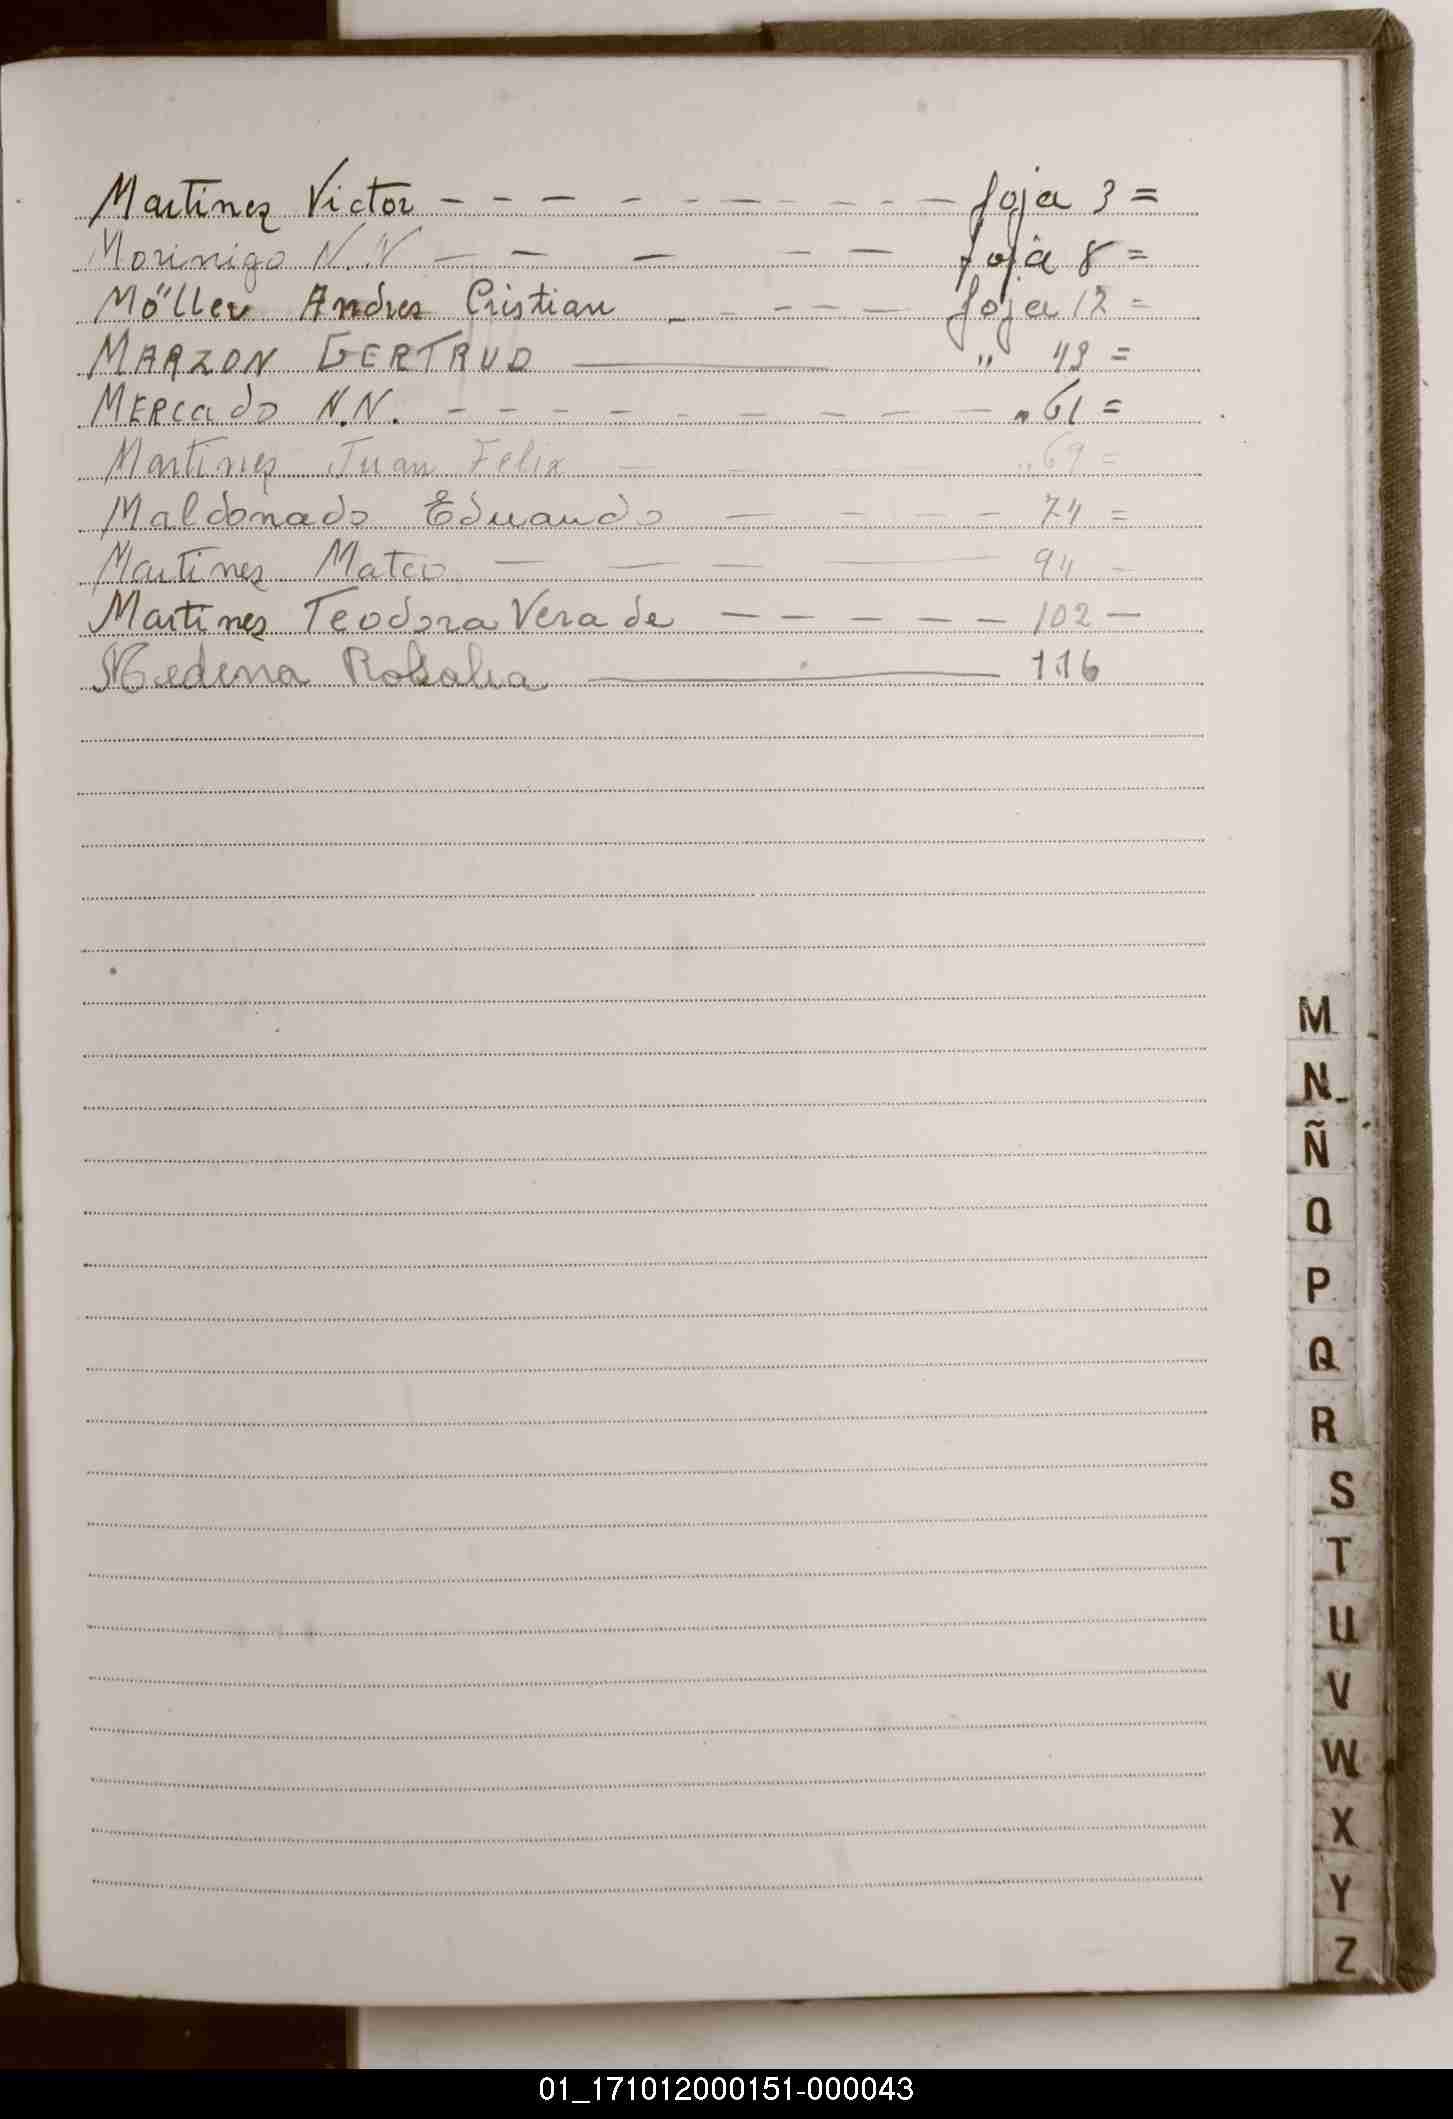 Martinez Victor - - - - - - - - - - foja 3 =
Morinigo N.N - - - - - foja 8 =
Möller Andres Cristian - - - - - foja 12 =
MARZON GERTRUD — " 49 =
MERCADO N.N. - - - - - - - - - " 61 =
Martinez Juan Felix - - - - " 69 =
Maldonado Eduardo - - - - - 74 =
Martinez Mateo - - - - 94 -
Martinez Teodora Vera de - - - - - - 102 -
Medina Rosalia — 116
M
N
Ñ
O
P
Q
R
S
T
U
V
W
X
Y
Z
01_171012000151-000043